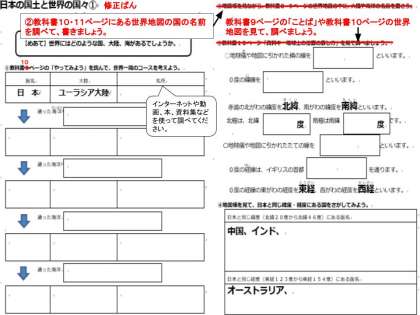 日本の国土と世界の国々① 修正ばん
②教科書10・11ページにある世界地図の国の名前
を調べて、書きましょう。
【めあて】世界にはどのような国、大陸、海があるでしょうか。
10
ページの「やってみよう」を読んで、世界一周のコースを考えよう。
国名。
大陸。
名所。
日本
ユーラシア大陸
インターネットや動
画、本、資料集など
を使って調べてくだ
さい。
通った海洋
通った海洋
通った海洋
通った海洋
教科書9ページの「ことば」や教科書10ページの世界
地図を見て、調べましょう。
○地球儀や地図に引かれた横の線を
といいます。
0度の緯線を
といいます。
赤道の北がわの緯度を北緯、南がわの緯度を南緯といいます。
北極は、北緯
度
南極は南緯
度
です。
○地球儀や地図に引かれたたての線を
といいます。
0度の経線は、イギリスの首都
を通ります。
0度の経線の東がわの経度を東経、西がわの経度を西経といいます。
地図帳を見ながら、日本と同じ緯度・経度にある国をさがしてみよう。
日本と同じ緯度（北緯20度から北緯46度）にある国名。
中国、インド、
日本と同じ経度（東経123度から東経154度）にある国名。
オーストラリア、